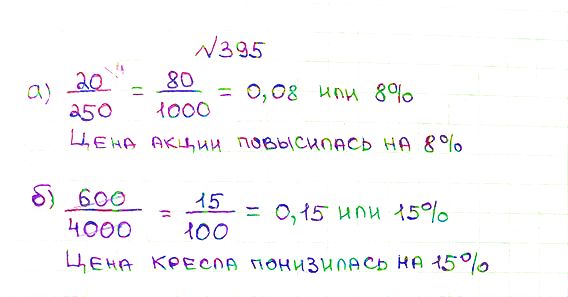 №395
а) 20/250 = 80/1000 = 0,08 или 8%
Цена акции повысилась на 8%
б) 600/4000 = 15/100 = 0,15 или 15%
Цена кресла понизилась на 15%